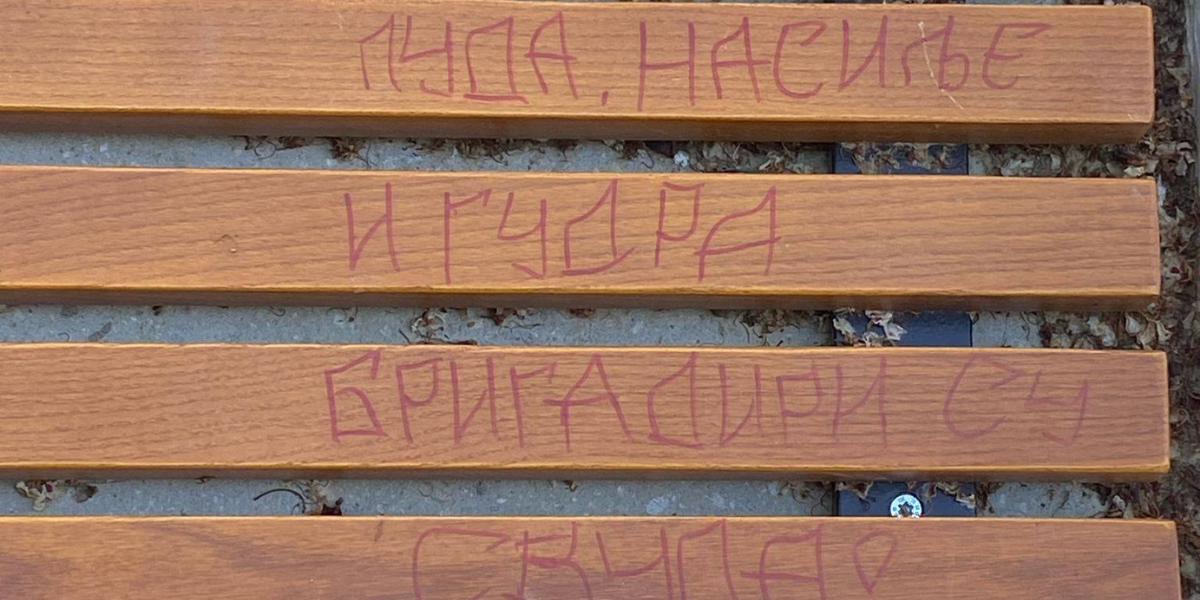 ЛУДА, НАСИЉЕ
И ГУДРА
БРИГАДИРИ СУ
СКУПА